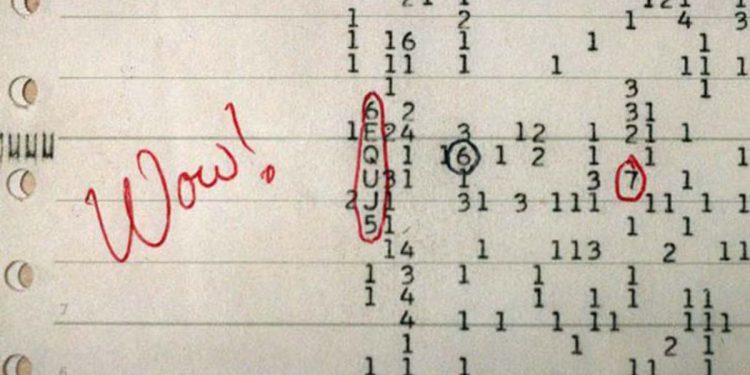 1 2 1 4 3
1 16 1 1 1
1 11 1 1 11 1
1 3 1
6 2 31
1 E24 3 12 1 21 1
Q 1 16 1 2 1 1 1
Wow!
U31 1 3 7 1
2 J1 31 3 111 11 1 1
51 1 1
14 1 113 2 11
1 3 1 1 1
1 4 1 1 1 11
7
4 1 1 1 11 111
1 1 2 1
1 1 1 11 1